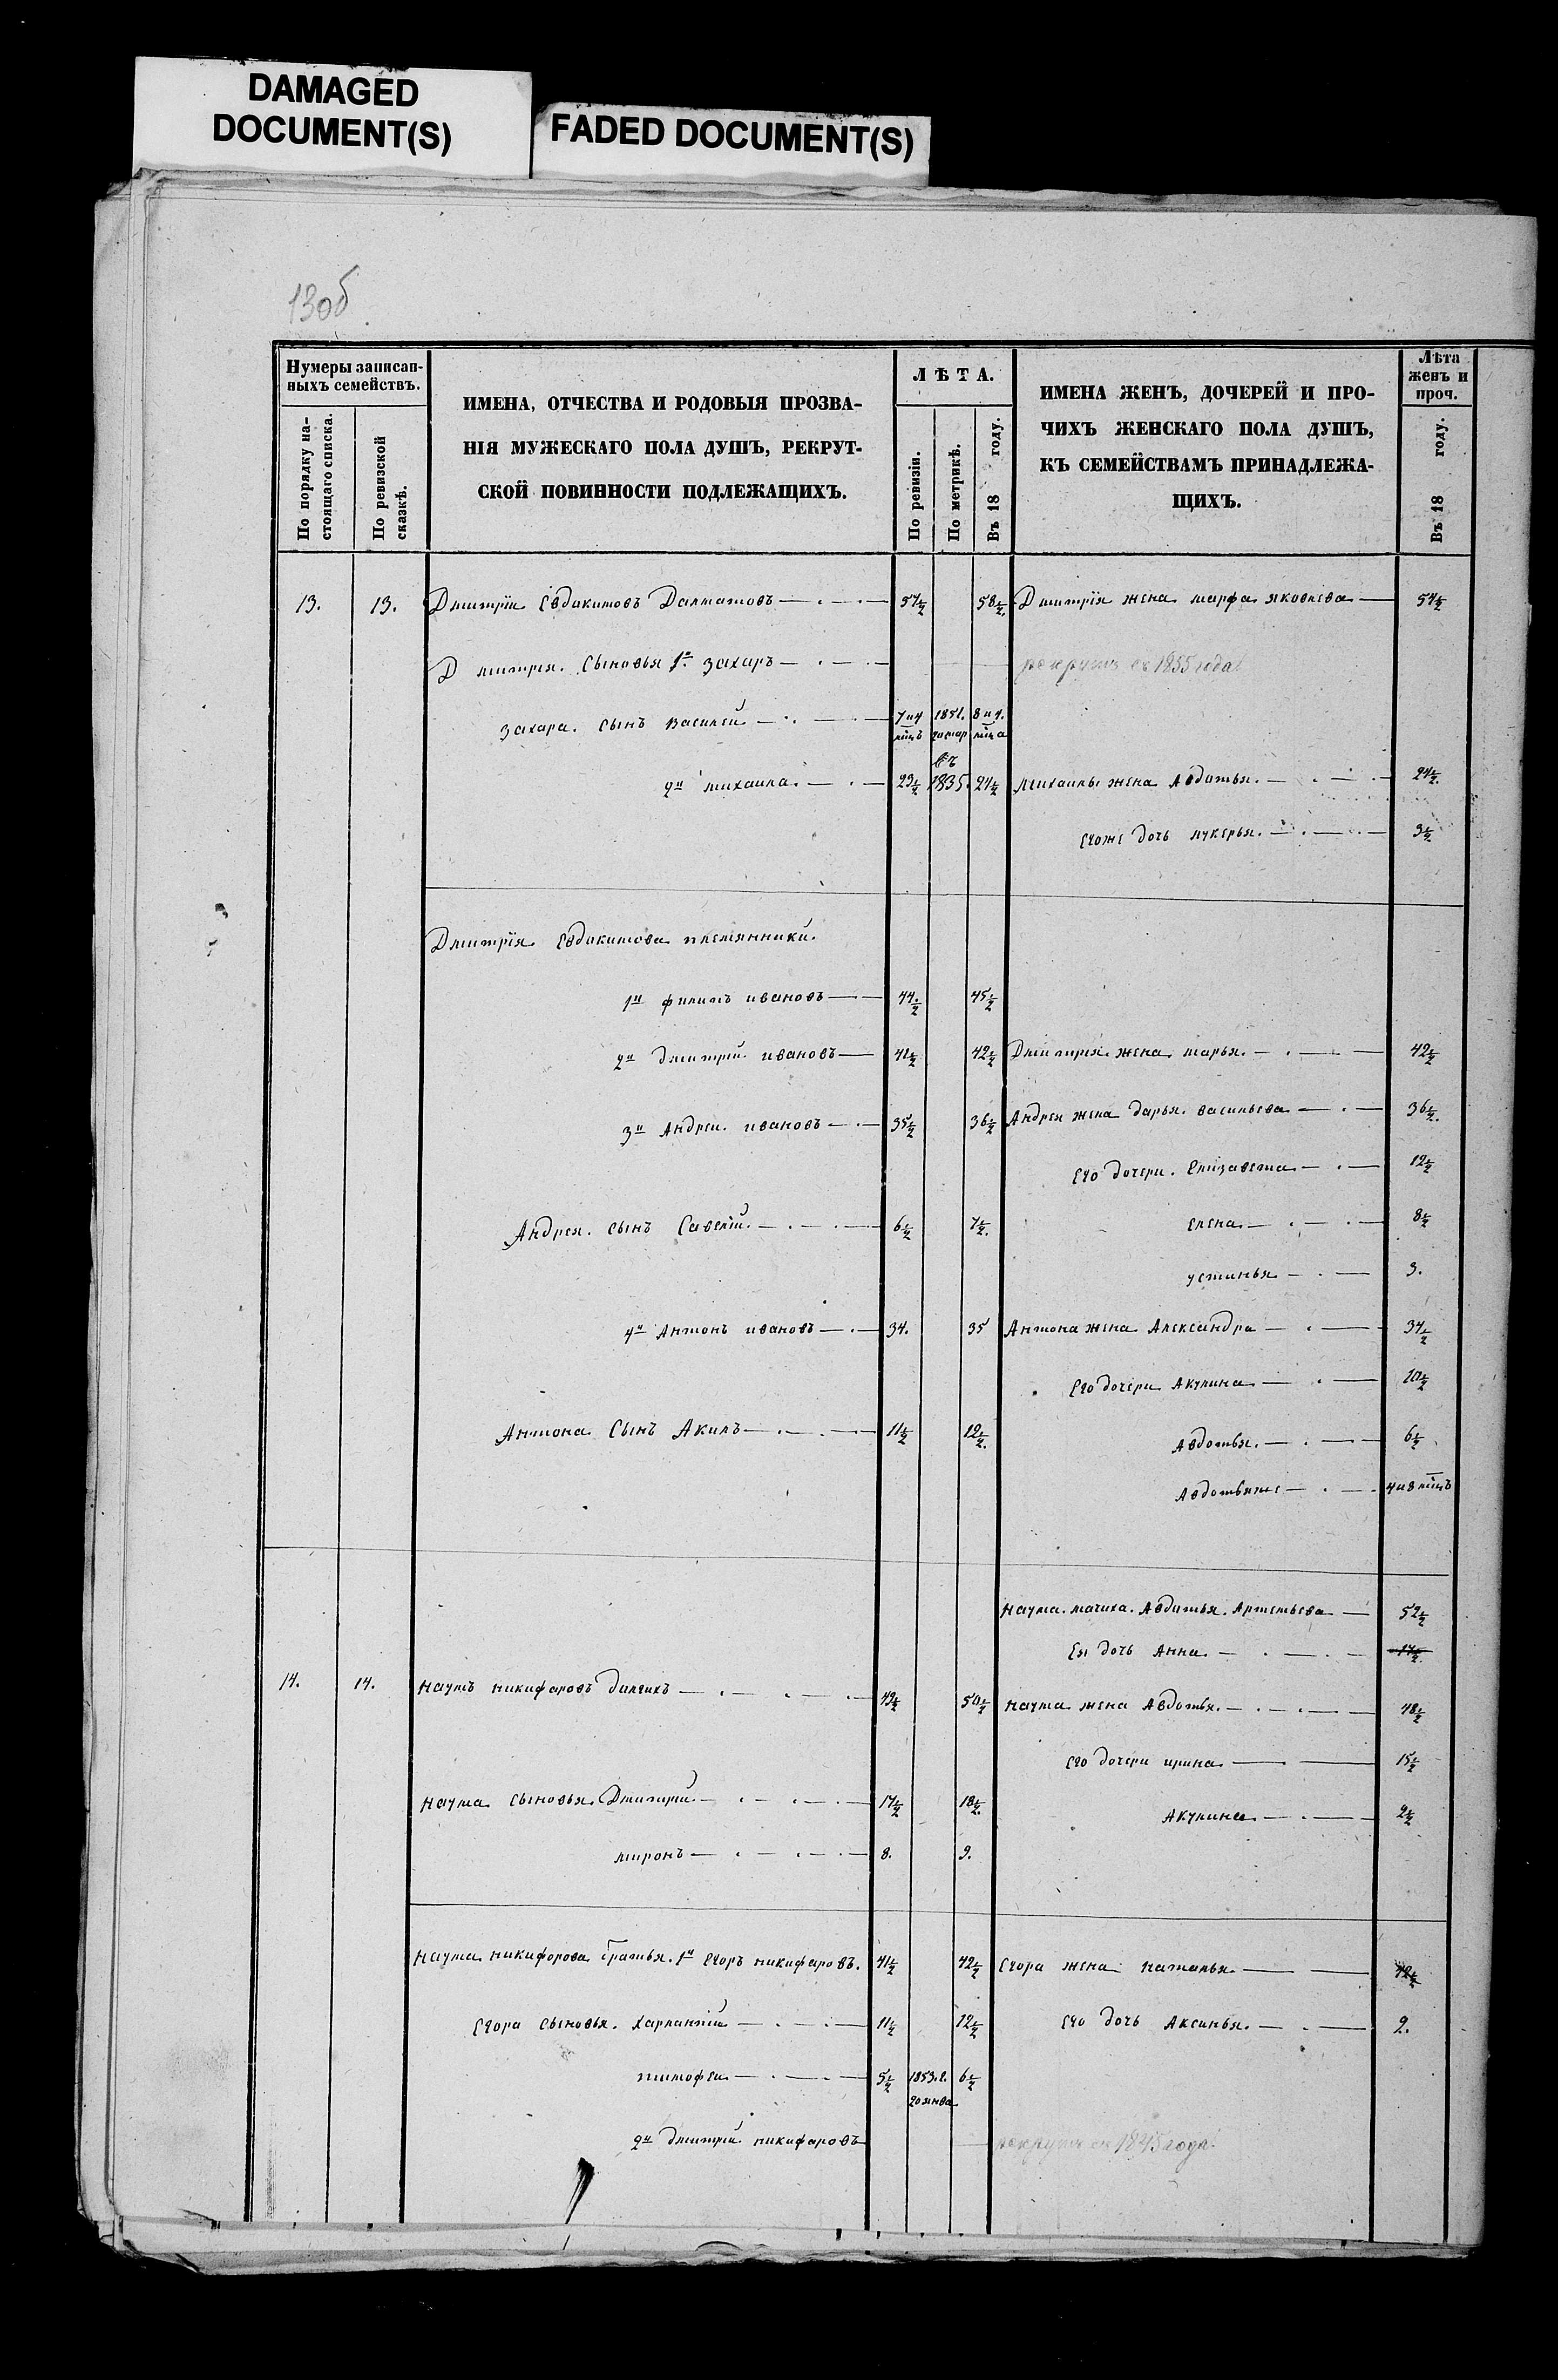 DAMAGED
DOCUMENT(S)
FADED DOCUMENT(S)
13об
Нумеры записан-
ныхъ семействъ.
По порядку на-
стоящаго списка.
По ревизской
сказкѣ.
ИМЕНА, ОТЧЕСТВА И РОДОВЫЯ ПРОЗВА-
НІЯ МУЖЕСКАГО ПОЛА ДУШЪ, РЕКРУТ-
СКОЙ ПОВИННОСТИ ПОДЛЕЖАЩИХЪ.
ЛѢТА.
По ревизіи.
По метрикѣ.
Въ 18 году.
ИМЕНА ЖЕНЪ, ДОЧЕРЕЙ И ПРО-
ЧИХЪ ЖЕНСКАГО ПОЛА ДУШЪ,
КЪ СЕМЕЙСТВАМЪ ПРИНАДЛЕЖА-
ЩИХЪ.
Лѣта
женъ и
проч.
Въ 18 году.
13. 13. Дмитріи Евдокимовъ Далматовъ 57½ 58½ Дмитрія жена марфа яковлева 54½
Дмитрія. Сыновья 1й захаръ рекрутъ съ 1855 года
захара. сынъ Василей 7 и 4 мѣцъ 1851. 8 и 4. мѣца
2й михаила. 23½ въ 1835. 24½ михаилы жена Авдотья. 24½
Егоже дочь лукерья. 3½
Дмитрія Евдокимова племянники.
1й филипъ ивановъ 44½ 45½
2й дмитрий ивановъ 41½ 42½ Дмитрия жена марья. 42½
3й Андреи ивановъ 35½ 36½ Андрея жена дарья васильева 36½
Его дочери. Елизавета 12½
Андрея. сынъ Савелій. 6½ 7½ Елена 8½
устинья 3.
4й Антонъ ивановъ 34. 35 Антона жена Александра 34½
Его дочери Акулина 10½
Антона Сынъ Акилъ 11½ 12½ Авдотья. 6½
Авдотьяже 4 и 8 мѣцъ
наума. мачиха. Авдотья. Артемьева 52½
Ея дочь Анна. 17½
14. 14. наумъ никифаровъ 49½ 50½ наума жена Авдотья. 48½
Его дочери ирина 15½
наума сыновья Дмитрий 17½ 18½ Акулина 2½
миронъ 8. 9.
наума никифорова братья. 1й Егоръ никифаровъ. 41½ 42½ Егора жена наталья
Егора сыновья. Харлампій 11½ 12½ Его дочь Аксинья. 2.
тимофеи 5½ 1853. г. 6½
2й дмитрии никифаровъ рекрутъ съ 1845 года